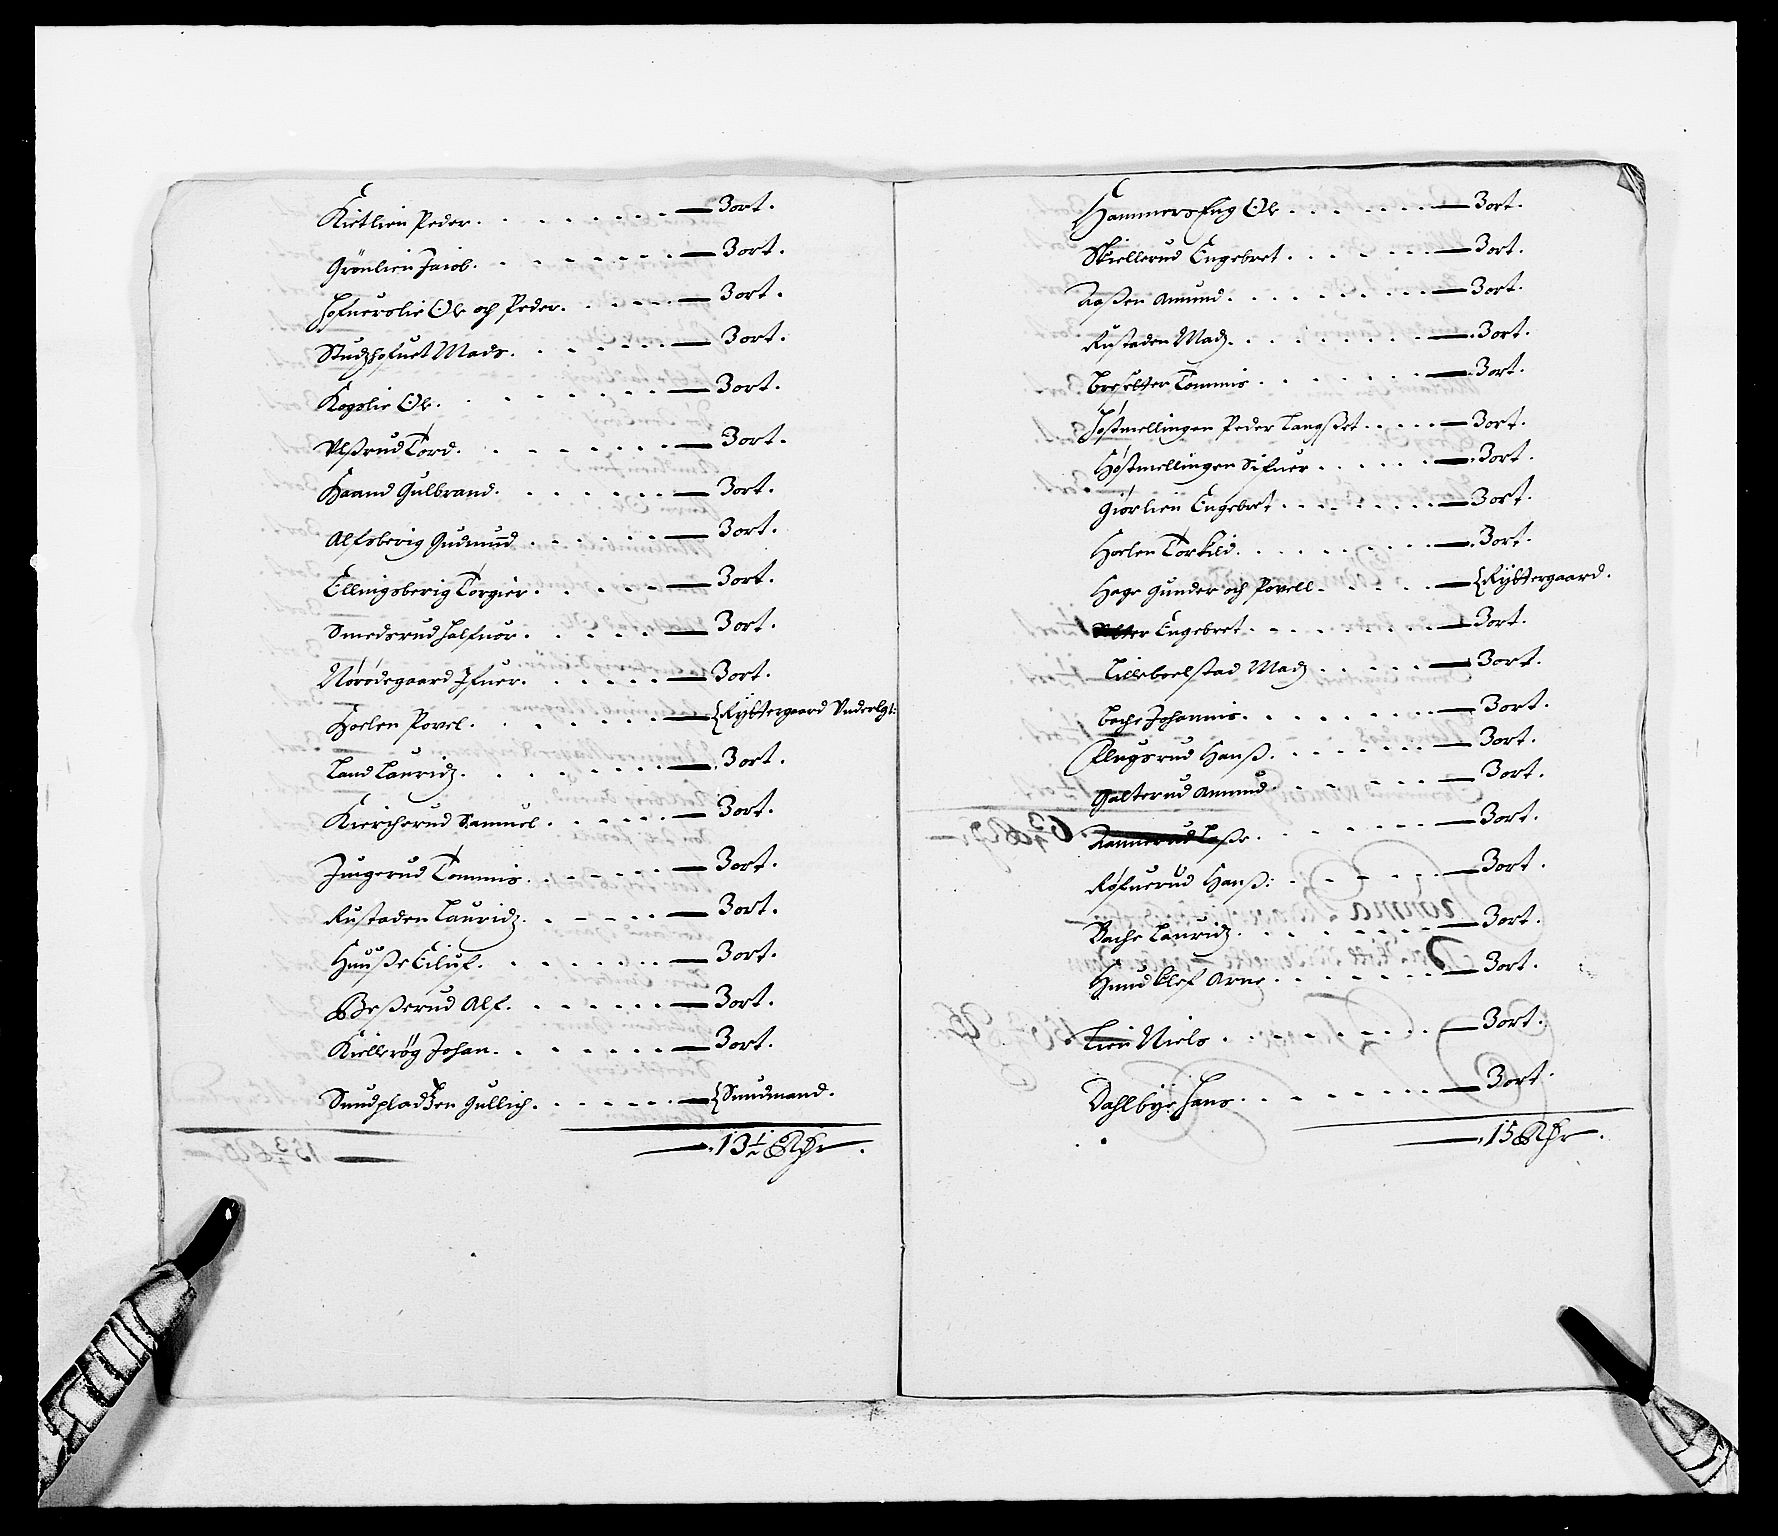 Kietlien Peder. — 3ort.
Grönlien Jacob. — 3ort.
Hofuerslie Ole och Peder. — 3ort.
Studzhofuet Mads. — 3ort.
Kogslie Ole. — 3ort.
Ulßrud Tord. — 3ort.
Haand Gulbrand. — 3ort.
Alfsberig Gudmund — 3ort.
Ellingsberig Torgier. — 3ort.
Smedsrud Halfuor. — 3ort.
Nörödegaard Ifuer. — 3ort.
Hoelen Povel. — Ryttergaard Underlgt:
Land Lauridz. — 3ort.
Kiercherud Samuel. — 3ort.
Jungerud Tommis. — 3ort.
Rustaden Lauridz. — 3ort.
Huuße Eiluf. — 3ort.
Beßerud Alf. — 3ort.
Kiellerög Johan. — 3ort.
Sundpladzen Gullich. — Sundmand.
— 13½ Rdr.
Hammers Eng Ole — 3ort.
Skiellerud Engebret — 3ort.
Roßen Amund. — 3ort.
Rustaden Madz. — 3ort.
Tommis — 3ort.
Höstmellingen Peder Langßet — 3ort.
Höstmellingen Sifuer — 3ort.
Giörlien Engebret — 3ort.
Hoelen Torkild. — 3ort.
Hage Gunder och Povell. — Ryttergaard.
Engebret — 3ort.
Lilleboelstad Madz — 3ort.
Bache Johannis. — 3ort.
Flugsrud Hanß. — 3ort.
Galterud Amund. — 3ort.
Rannerud Laße. — 3ort.
Röfuerud Hanß: — 3ort.
Bache Lauridz. — 3ort.
Hund Klef Arne — 3ort.
Lien Niels — 3ort.
Dahlbye Hans. — 3ort.
— 15 Rdr.